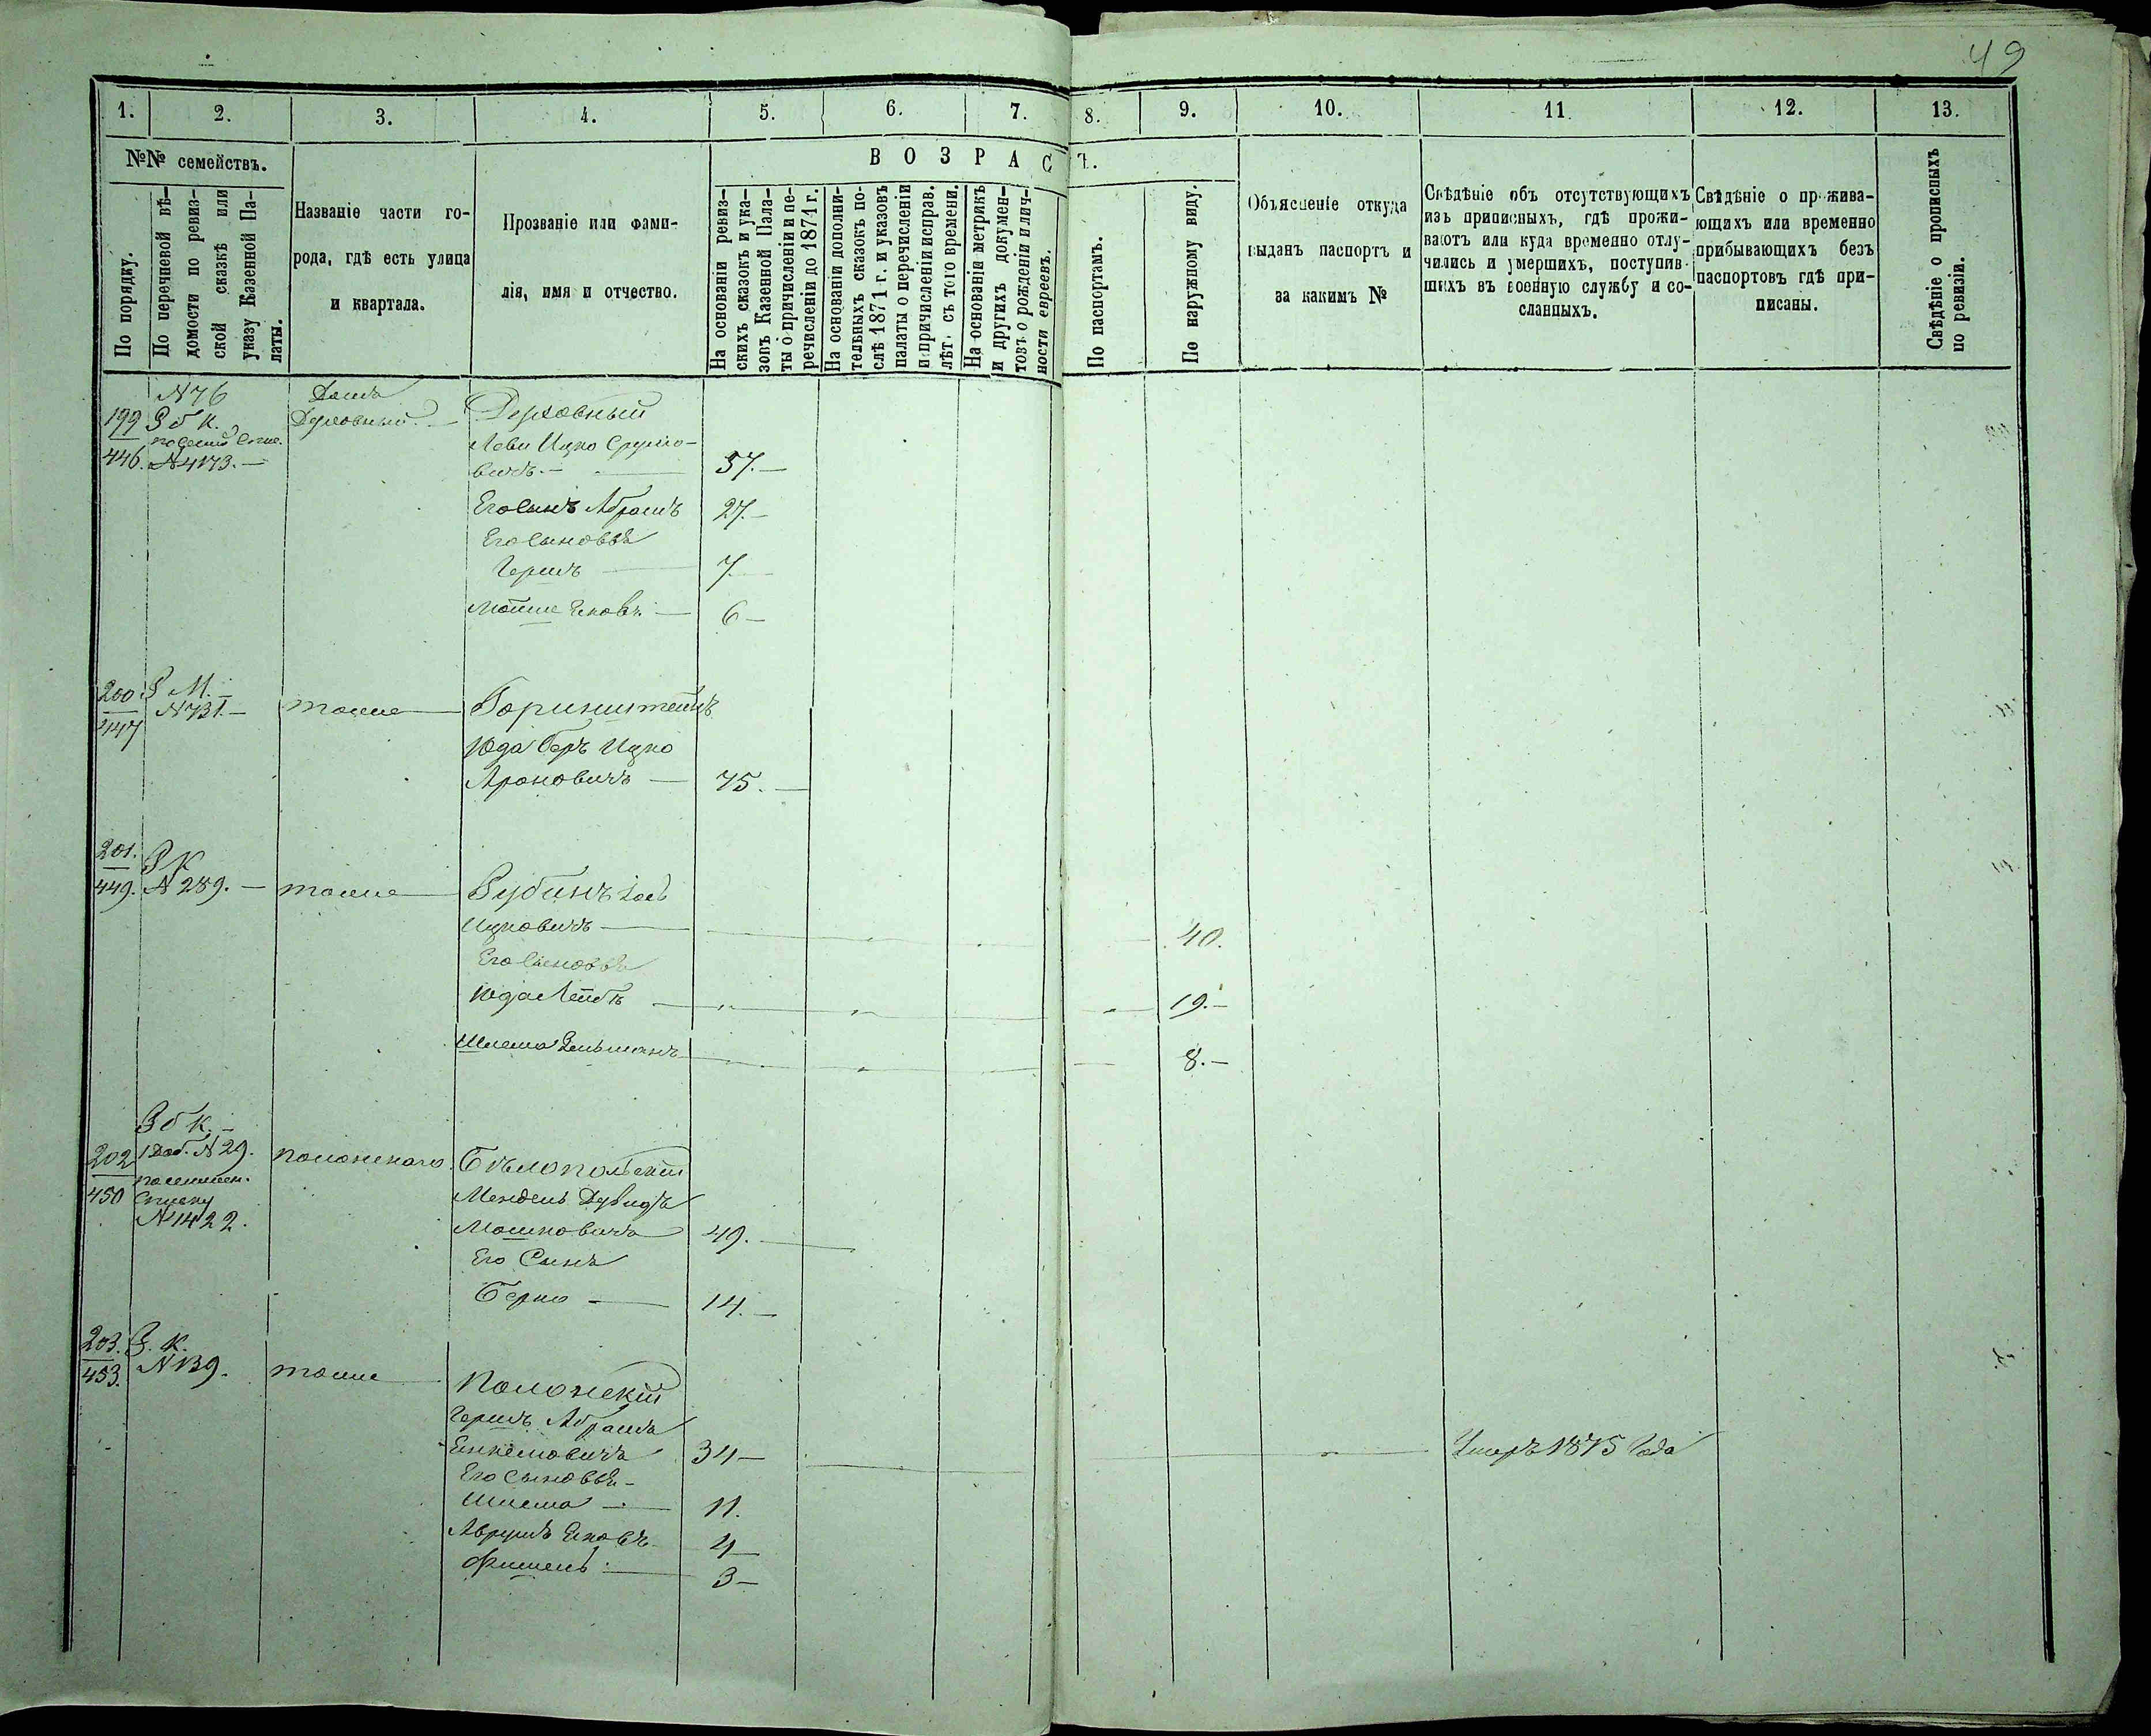 49
1. 2. 3. 4. 5. 6. 7. 8. 9. 10. 11. 12. 13.
№№ семействъ.
По порядку.
По перечневой вѣ-
домости по ревиз-
ской сказкѣ или
указу Казенной Па-
латы.
Названіе части го-
рода, гдѣ есть улица
и квартала.
Прозваніе или фами-
лія, имя и отчество.
ВОЗРАСТ.
На основаніи ревиз-
скихъ сказокъ и ука-
зовъ Казенной Пала-
ты о причисленіи и пе-
речисленіи до 1871 г.
На основаніи дополни-
тельныхъ сказокъ по-
слѣ 1871 г. и указовъ
палаты о перечисленіи
и причисленіи исправ.
лѣт. съ того времени.
На основаніи метрикъ
и другихъ докумен-
товъ о рожденіи и лич-
ности евреевъ.
По паспортамъ.
По наружному виду.
Объясненіе откуда
выданъ паспортъ и
за какимъ №
Свѣдѣніе объ отсутствующихъ
изъ приписныхъ, гдѣ прожи-
ваютъ или куда временно отлу-
чились и умершихъ, поступив-
шихъ въ военную службу и со-
сланныхъ.
Свѣдѣніе о прожива-
ющихъ или временно
прибывающихъ безъ
паспортовъ гдѣ при-
писаны.
Свѣдѣніе о прописныхъ
по ревизіи.
№76 Домъ
199 З б К. Держовный
446. №4173.
Лови Ицко Срулио-
вичъ. 57.
Его Сынъ Абрамъ 27.
Его Сыновья
Гершъ 7
Мошие Яновъ 6
200. Р М.
447 №731. тоже Боринштейнъ
Юда Беръ Ицко
Ароновичъ 75.
201. Р К
449. № 289. тоже Рубинъ Іосъ
Ицковичъ 40.
Его Сыновья
Юда Лейбъ 19.
Шлема Зельманъ 8.
З б К.
202 1 Доб. №29. Полонскаго Бѣлопольскій
450 посемейн.
Списку
№1422.
Мендель Дувидъ
Мошковичъ 49.
Его Сынъ
Берко 14.
203. З. К.
453. №139. тоже Полонскій
Гершъ Абрамъ
Янкелевичъ 34 Умеръ 1875 Года
Его Сыновья
Шлема 11.
Аврумъ Яновъ 4
Фишель 3